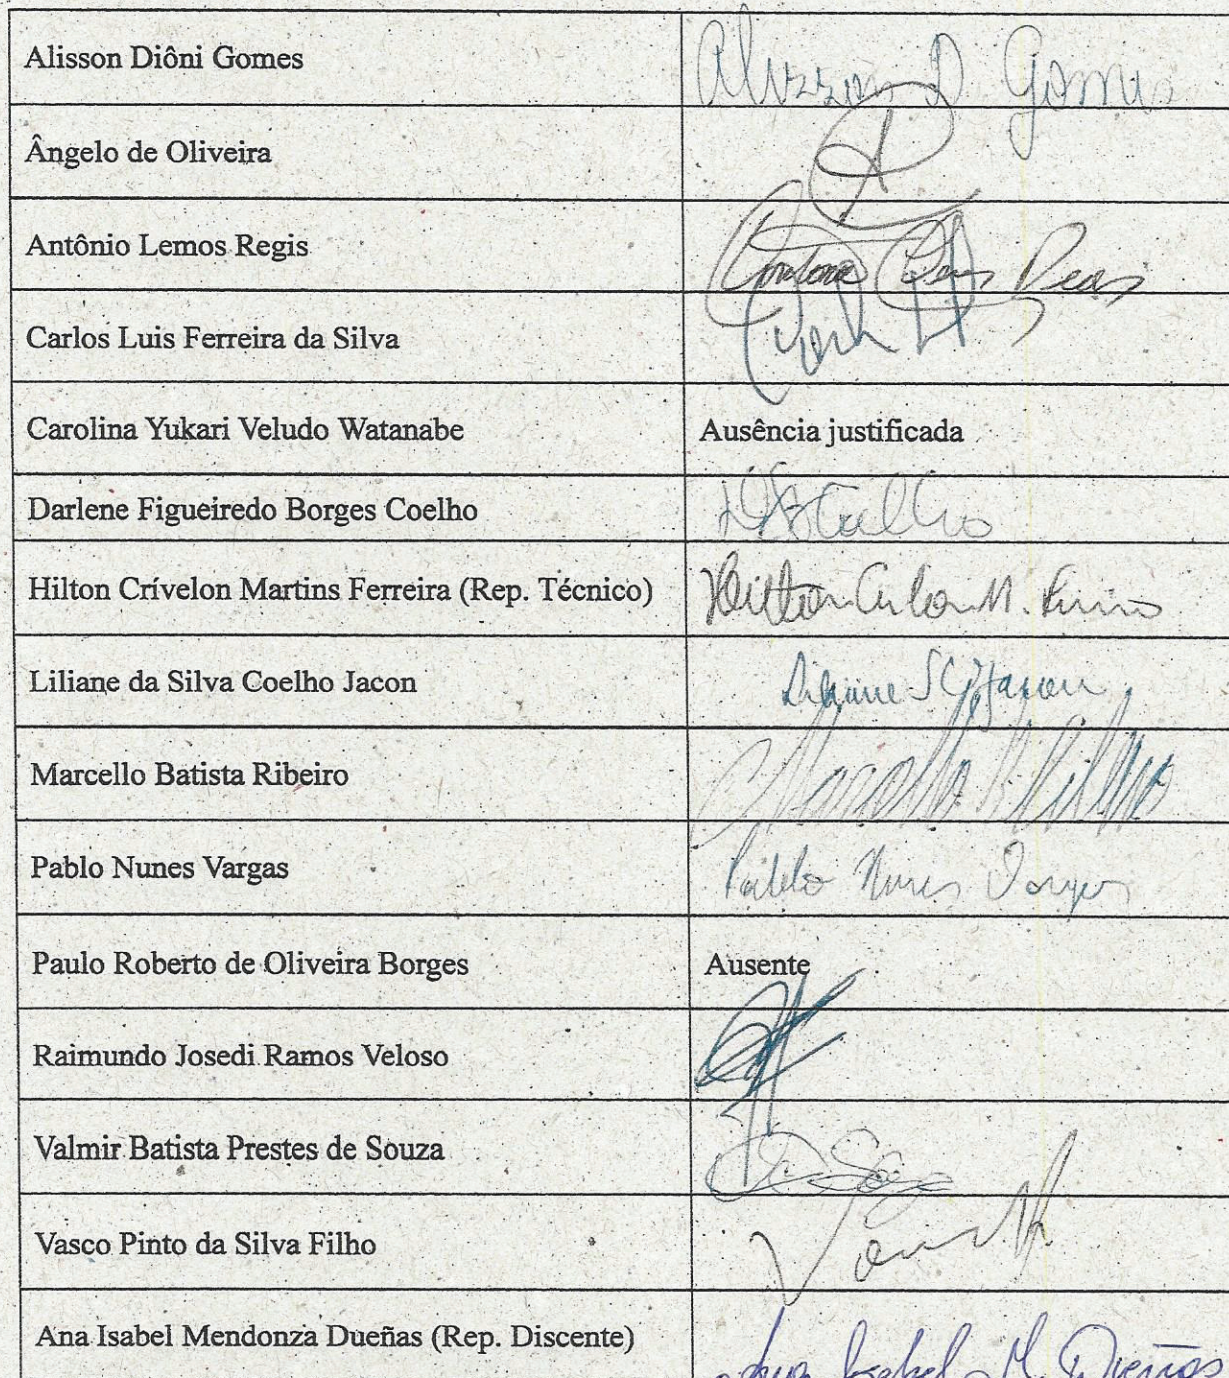 Alisson Diôni Gomes Alisson D. Gomes
Ângelo de Oliveira
Antônio Lemos Regis
Carlos Luis Ferreira da Silva
Carolina Yukari Veludo Watanabe Ausência justificada
Darlene Figueiredo Borges Coelho DFBCoelho
Hilton Crívelon Martins Ferreira (Rep. Técnico)
Liliane da Silva Coelho Jacon Liliane SCJacon
Marcello Batista Ribeiro Marcello B. Ribeiro
Pablo Nunes Vargas Pablo Nunes Vargas
Paulo Roberto de Oliveira Borges Ausente
Raimundo Josedi Ramos Veloso
Valmir Batista Prestes de Souza
Vasco Pinto da Silva Filho
Ana Isabel Mendonza Dueñas (Rep. Discente) Ana Isabel M. Dueñas